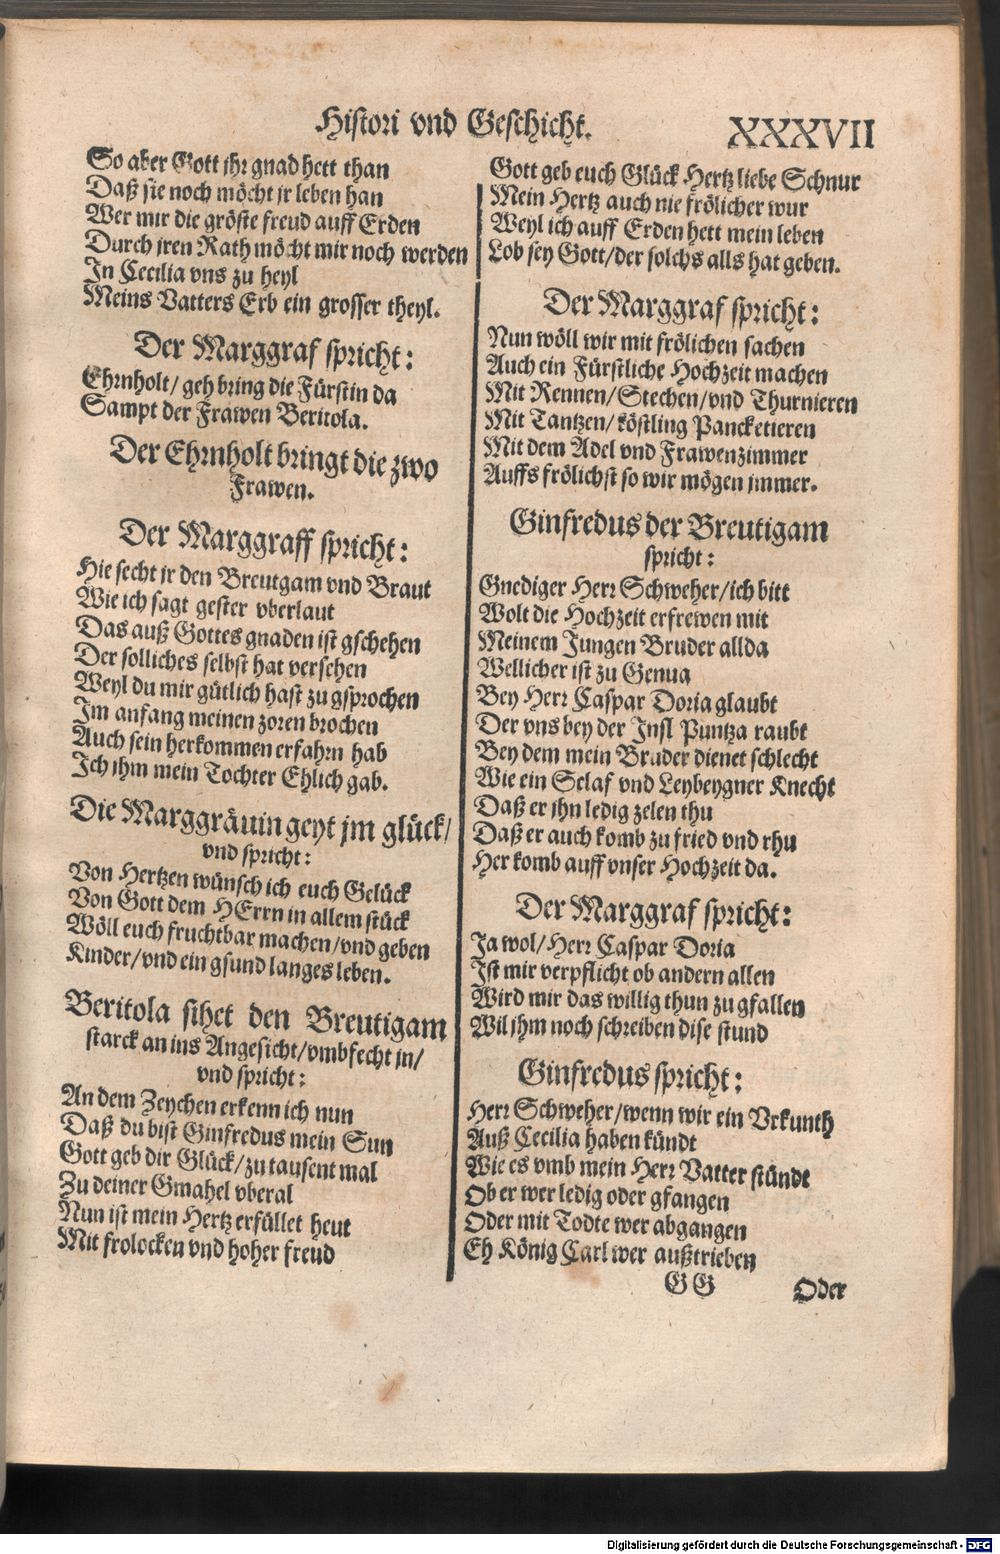 Histori vnd Geschicht.
XXXVII
So aber Gott jhr gnad hett than
Daß sie noch möcht jr leben han
Wer mir die gröste freud auff Erden
Durch jren Rath möcht mir noch werden
In Cecilia vns zu heyl
Meins Vatters Erb ein grosser theyl.
Der Marggraf spricht:
Ehrnholt/ geh bring die Fürstin da
Sampt der Frawen Beritola.
Der Ehrnholt bringt die zwo
Frawen.
Der Marggraff spricht:
Hie secht jr den Breutgam vnd Braut
Wie ich sagt gester vberlaut
Das auß Gottes gnaden ist gschehen
Der solliches selbst hat versehen
Weyl du mir gütlich hast zu gsprochen
Im anfang meinen zoren brochen
Auch sein herkommen erfahrn hab
Ich jhm mein Tochter Ehlich gab.
Die Marggräuin geyt jm glück/
vnd spricht:
Von Hertzen wünsch ich euch Gelück
Von Gott dem HErrn in allem stück
Wöll euch fruchtbar machen/vnd geben
Kinder/vnd ein gsund langes leben.
Beritola sihet den Breutigam
starck an ins Angesicht/vmbfecht jn/
vnd spricht:
An dem Zeychen erkenn ich nun
Daß du bist Ginfredus mein Sun
Gott geb dir Glück/zu tausent mal
Zu deiner Gmahel vberal
Nun ist mein Hertz erfüllet heut
Mit frolocken vnd hoher freud
Gott geb euch Glück Hertzliebe Schnur
Mein Hertz auch nie frölicher wur
Weyl ich auff Erden hett mein leben
Lob sey Gott/der solchs alls hat geben.
Der Marggraf spricht:
Nun wöll wir mit frölichen sachen
Auch ein Fürstliche Hochzeit machen
Mit Rennen/Stechen/vnd Thurnieren
Mit Tantzen/köstling Pancketieren
Mit dem Adel vnd Frawenzimmer
Auffs frölichst so wir mögen jmmer.
Ginfredus der Breutigam
spricht:
Gnediger Herr Schweher/ich bitt
Wolt die Hochzeit erfrewen mit
Meinem Jungen Bruder allda
Wellicher ist zu Genua
Bey Herr Caspar Doria glaubt
Der vns bey der Insl Puntza raubt
Bey dem mein Bruder dienet schlecht
Wie ein Sclaf vnd Leybeygner Knecht
Daß er jhn ledig zelen thu
Daß er auch komb zu fried vnd rhu
Her komb auff vnser Hochzeit da.
Der Marggraf spricht:
Ja wol/Herr Caspar Doria
Ist mir verpflicht ob andern allen
Wird mir das willig thun zu gfallen
Wil jhm noch schreiben dise stund
Ginfredus spricht:
Herr Schweher/wenn wir ein Vrkunth
Auß Cecilia haben kündt
Wie es vmb mein Herr Vatter stündt
Ob er wer ledig oder gfangen
Oder mit Todte wer abgangen
Eh König Carl wer außtrieben
GG
Oder
Digitalisierung gefördert durch die Deutsche Forschungsgemeinschaft - DFG